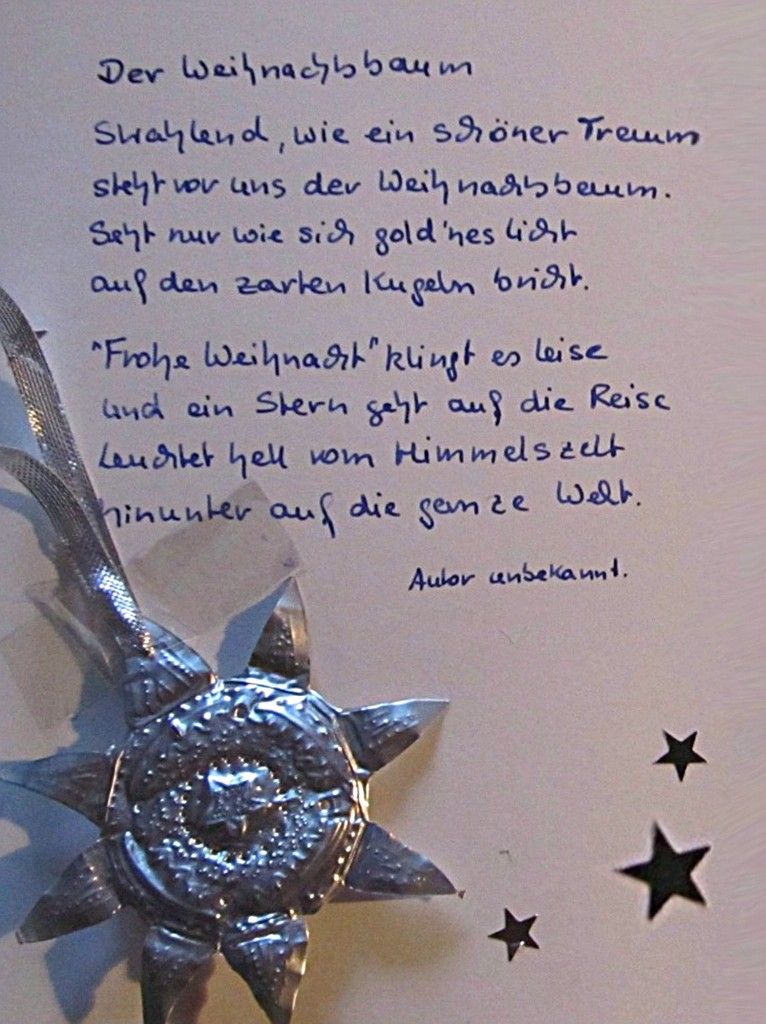 Der Weihnachtsbaum
Strahlend, wie ein schöner Traum
steht vor uns der Weihnachtsbaum.
Seht nur wie sich gold'nes Licht
auf den zarten Kugeln bricht.
"Frohe Weihnacht" klingt es leise
und ein Stern geht auf die Reise
Leuchtet hell vom Himmelszelt
hinunter auf die ganze Welt.
Autor unbekannt.